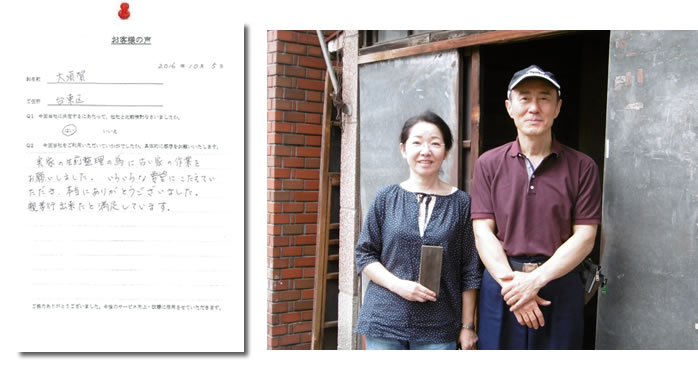 お客様の声
2016 年 10 月 5 日
お名前 大須賀
ご住所 台東区
Q1 今回当社に決定するにあたって、他社と比較検討なさいましたか。
はい いいえ
Q2 今回当社をご利用いただいていかがでしたか。具体的に感想をお願いいたします。
実家の生前整理の為に古い家の作業を
お願いしました。いろいろな要望にこたえてい
ただき、本当にありがとうございました。
親孝行出来たと満足しています。
ご協力ありがとうございました。今後のサービス向上・改善に活用させていただきます。